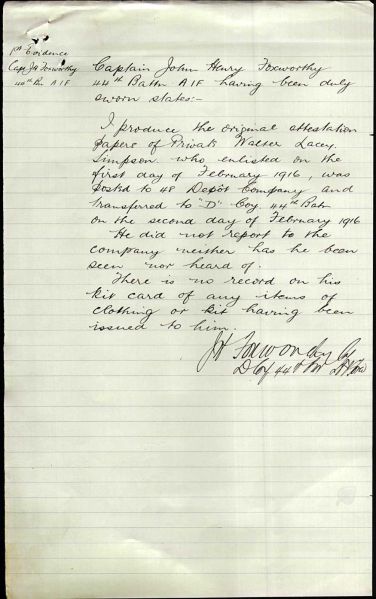 1st Evidence
Capt JH Foxworthy
44th Bn AIF
Captain John Henry Foxworthy
44th Battn AIF having been duly
sworn states:-
I produce the original attestation
papers of Private Walter Lacey
Simpson who enlisted on the
first day of February 1916, was
posted to 48 Depôt Company and
transferred to "D" Coy. 44th Batn
on the second day of February 1916
He did not report to the
company neither has he been
seen nor heard of.
There is no record on his
kit card of any items of
clothing or kit having been
issued to him.
JH Foxworthy
D Coy 44th Bn